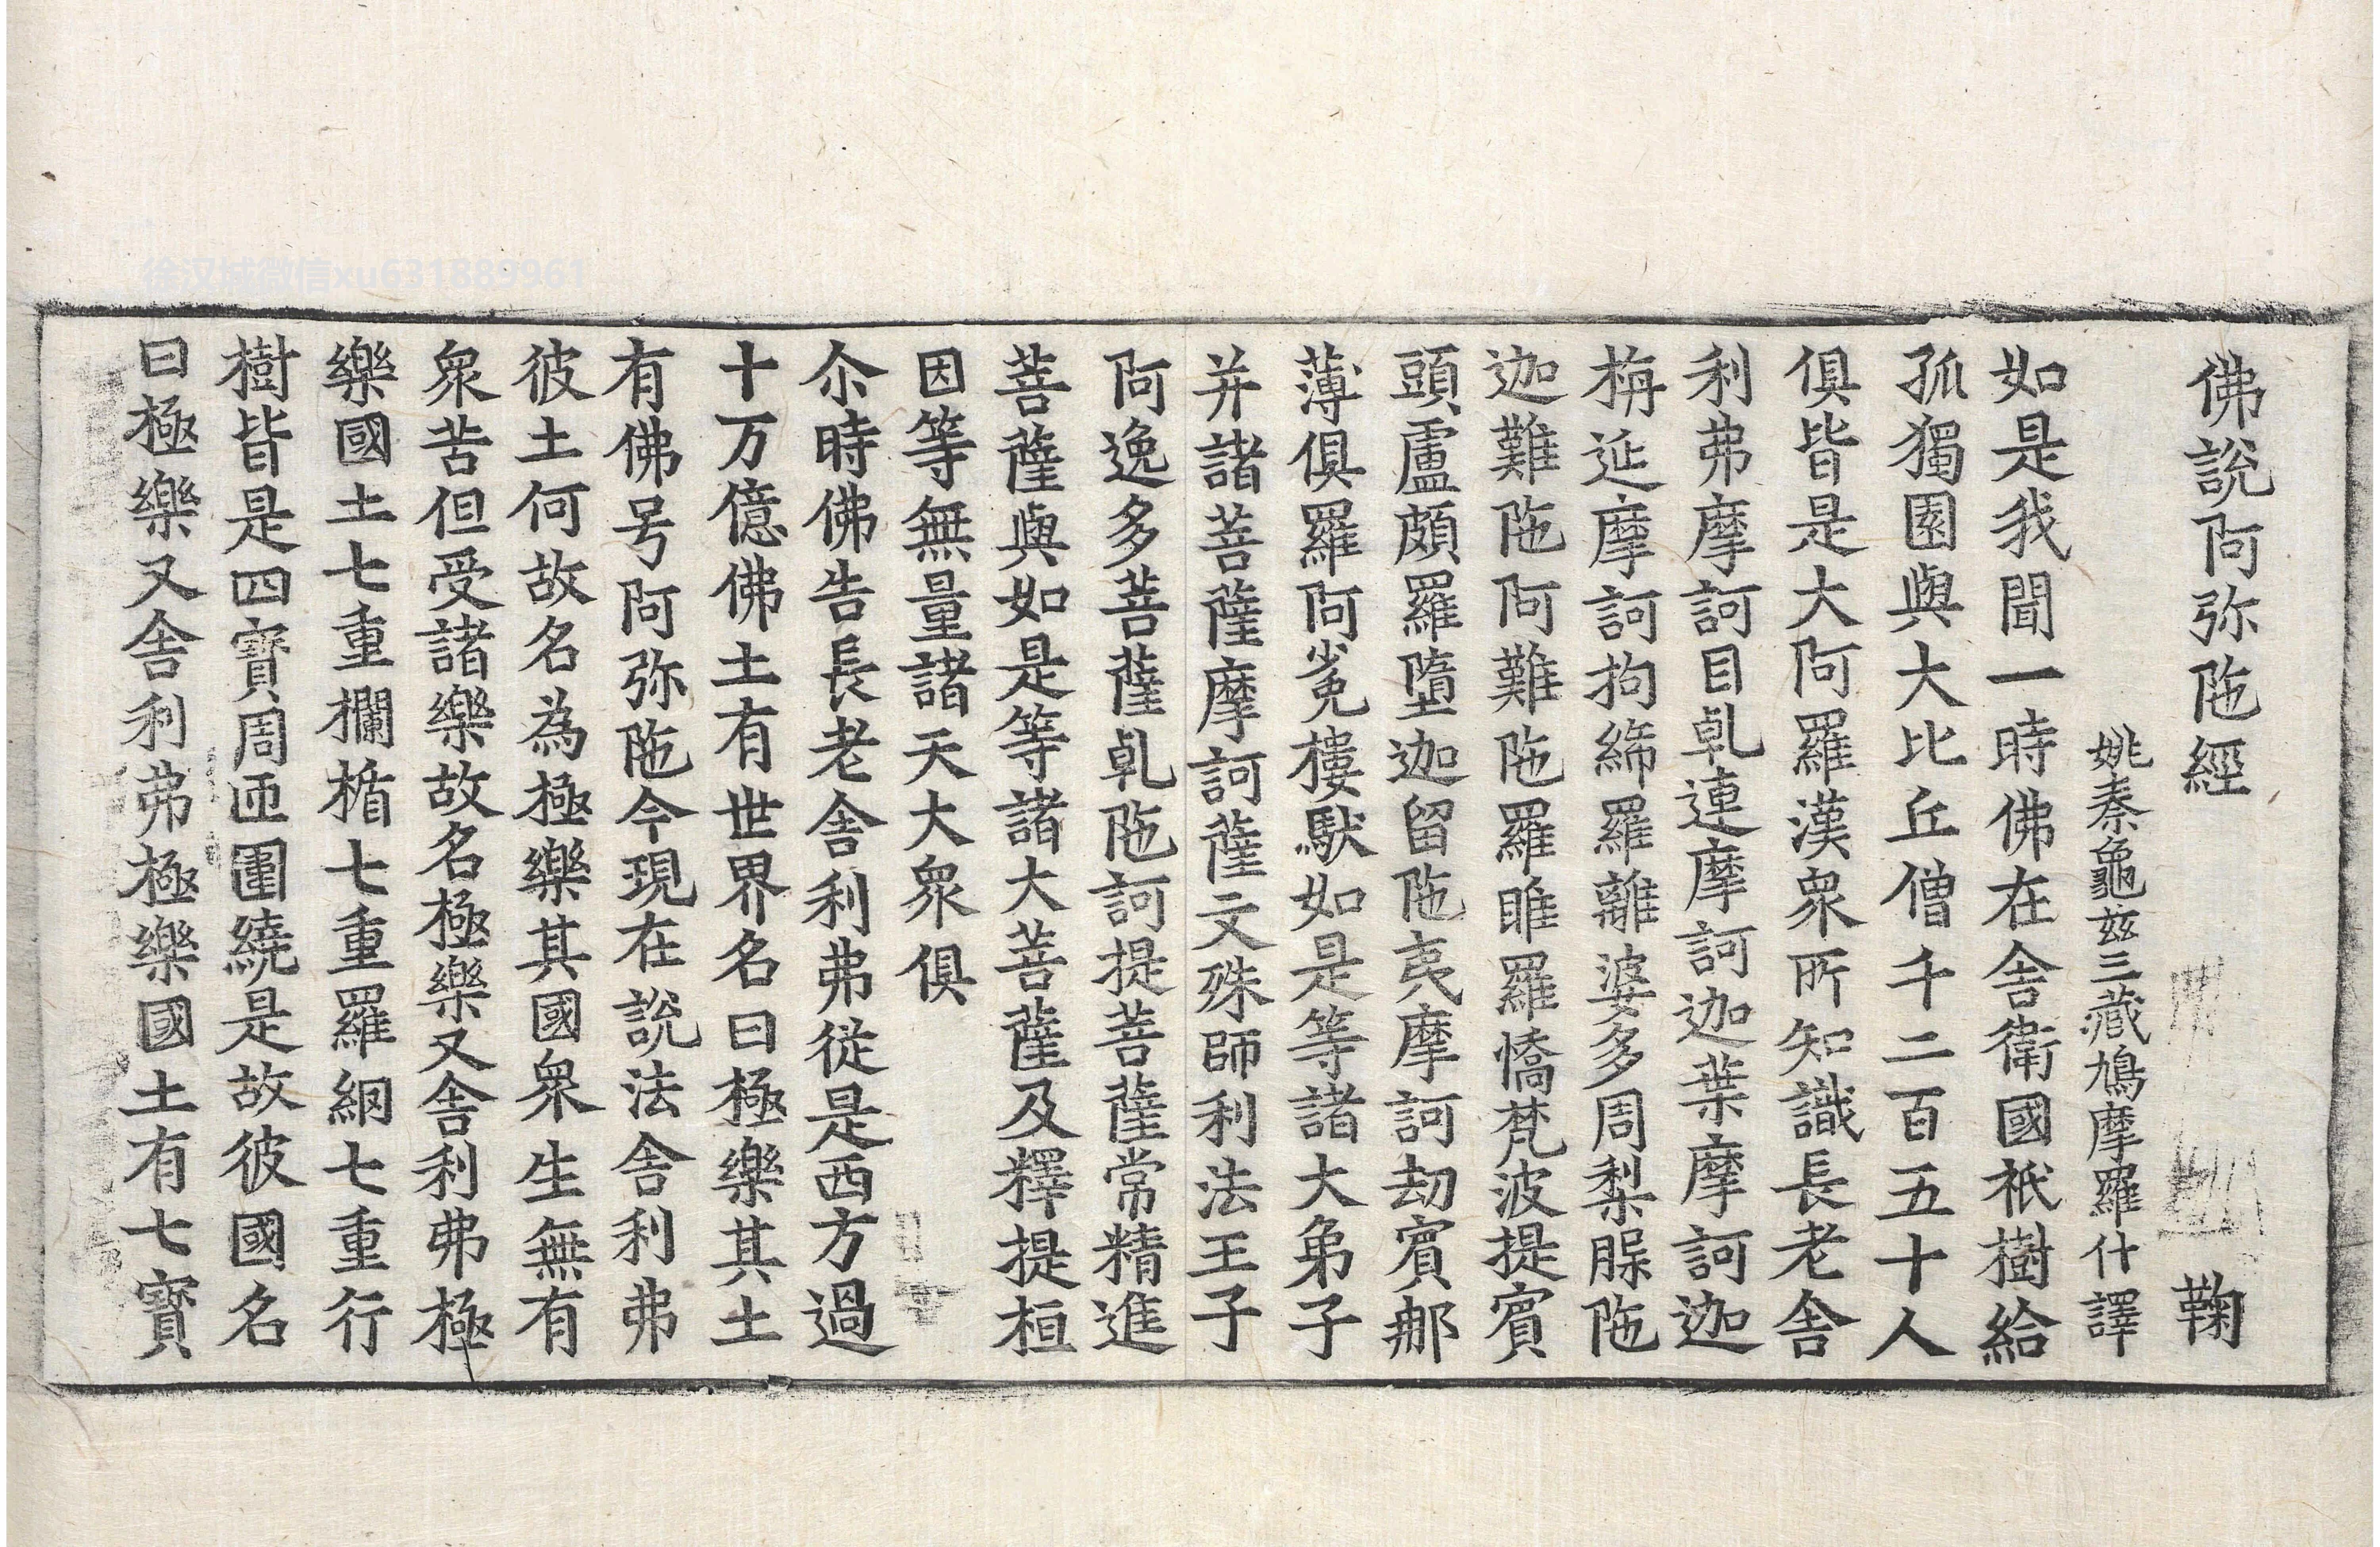 佛說阿弥陁經 鞠
姚秦龜茲三藏鳩摩羅什譯
如是我聞一時佛在舍衛國祇樹給
孤獨園與大比丘僧千二百五十人
俱皆是大阿羅漢衆所知識長老舍
利弗摩訶目乹連摩訶迦葉摩訶迦
栴延摩訶拘絺羅離婆多周梨腂陁
迦難陁阿難陁羅睺羅憍梵波提賓
頭盧頗羅墮迦留陁夷摩訶劫賓那
薄俱羅阿㝹樓馱如是等諸大弟子
并諸菩薩摩訶薩文殊師利法王子
阿逸多菩薩乹陁訶提菩薩常精進
菩薩與如是等諸大菩薩及釋提桓
因等無量諸天大衆俱
尒時佛告長老舍利弗從是西方過
十万億佛土有世界名曰極樂其土
有佛号阿弥陁今現在說法舍利弗
彼土何故名為極樂其國衆生無有
衆苦但受諸樂故名極樂又舍利弗極
樂國土七重欄楯七重羅網七重行
樹皆是四寶周匝圍繞是故彼國名
曰極樂又舍利弗極樂國土有七寶
徐汉城微信xu631889961